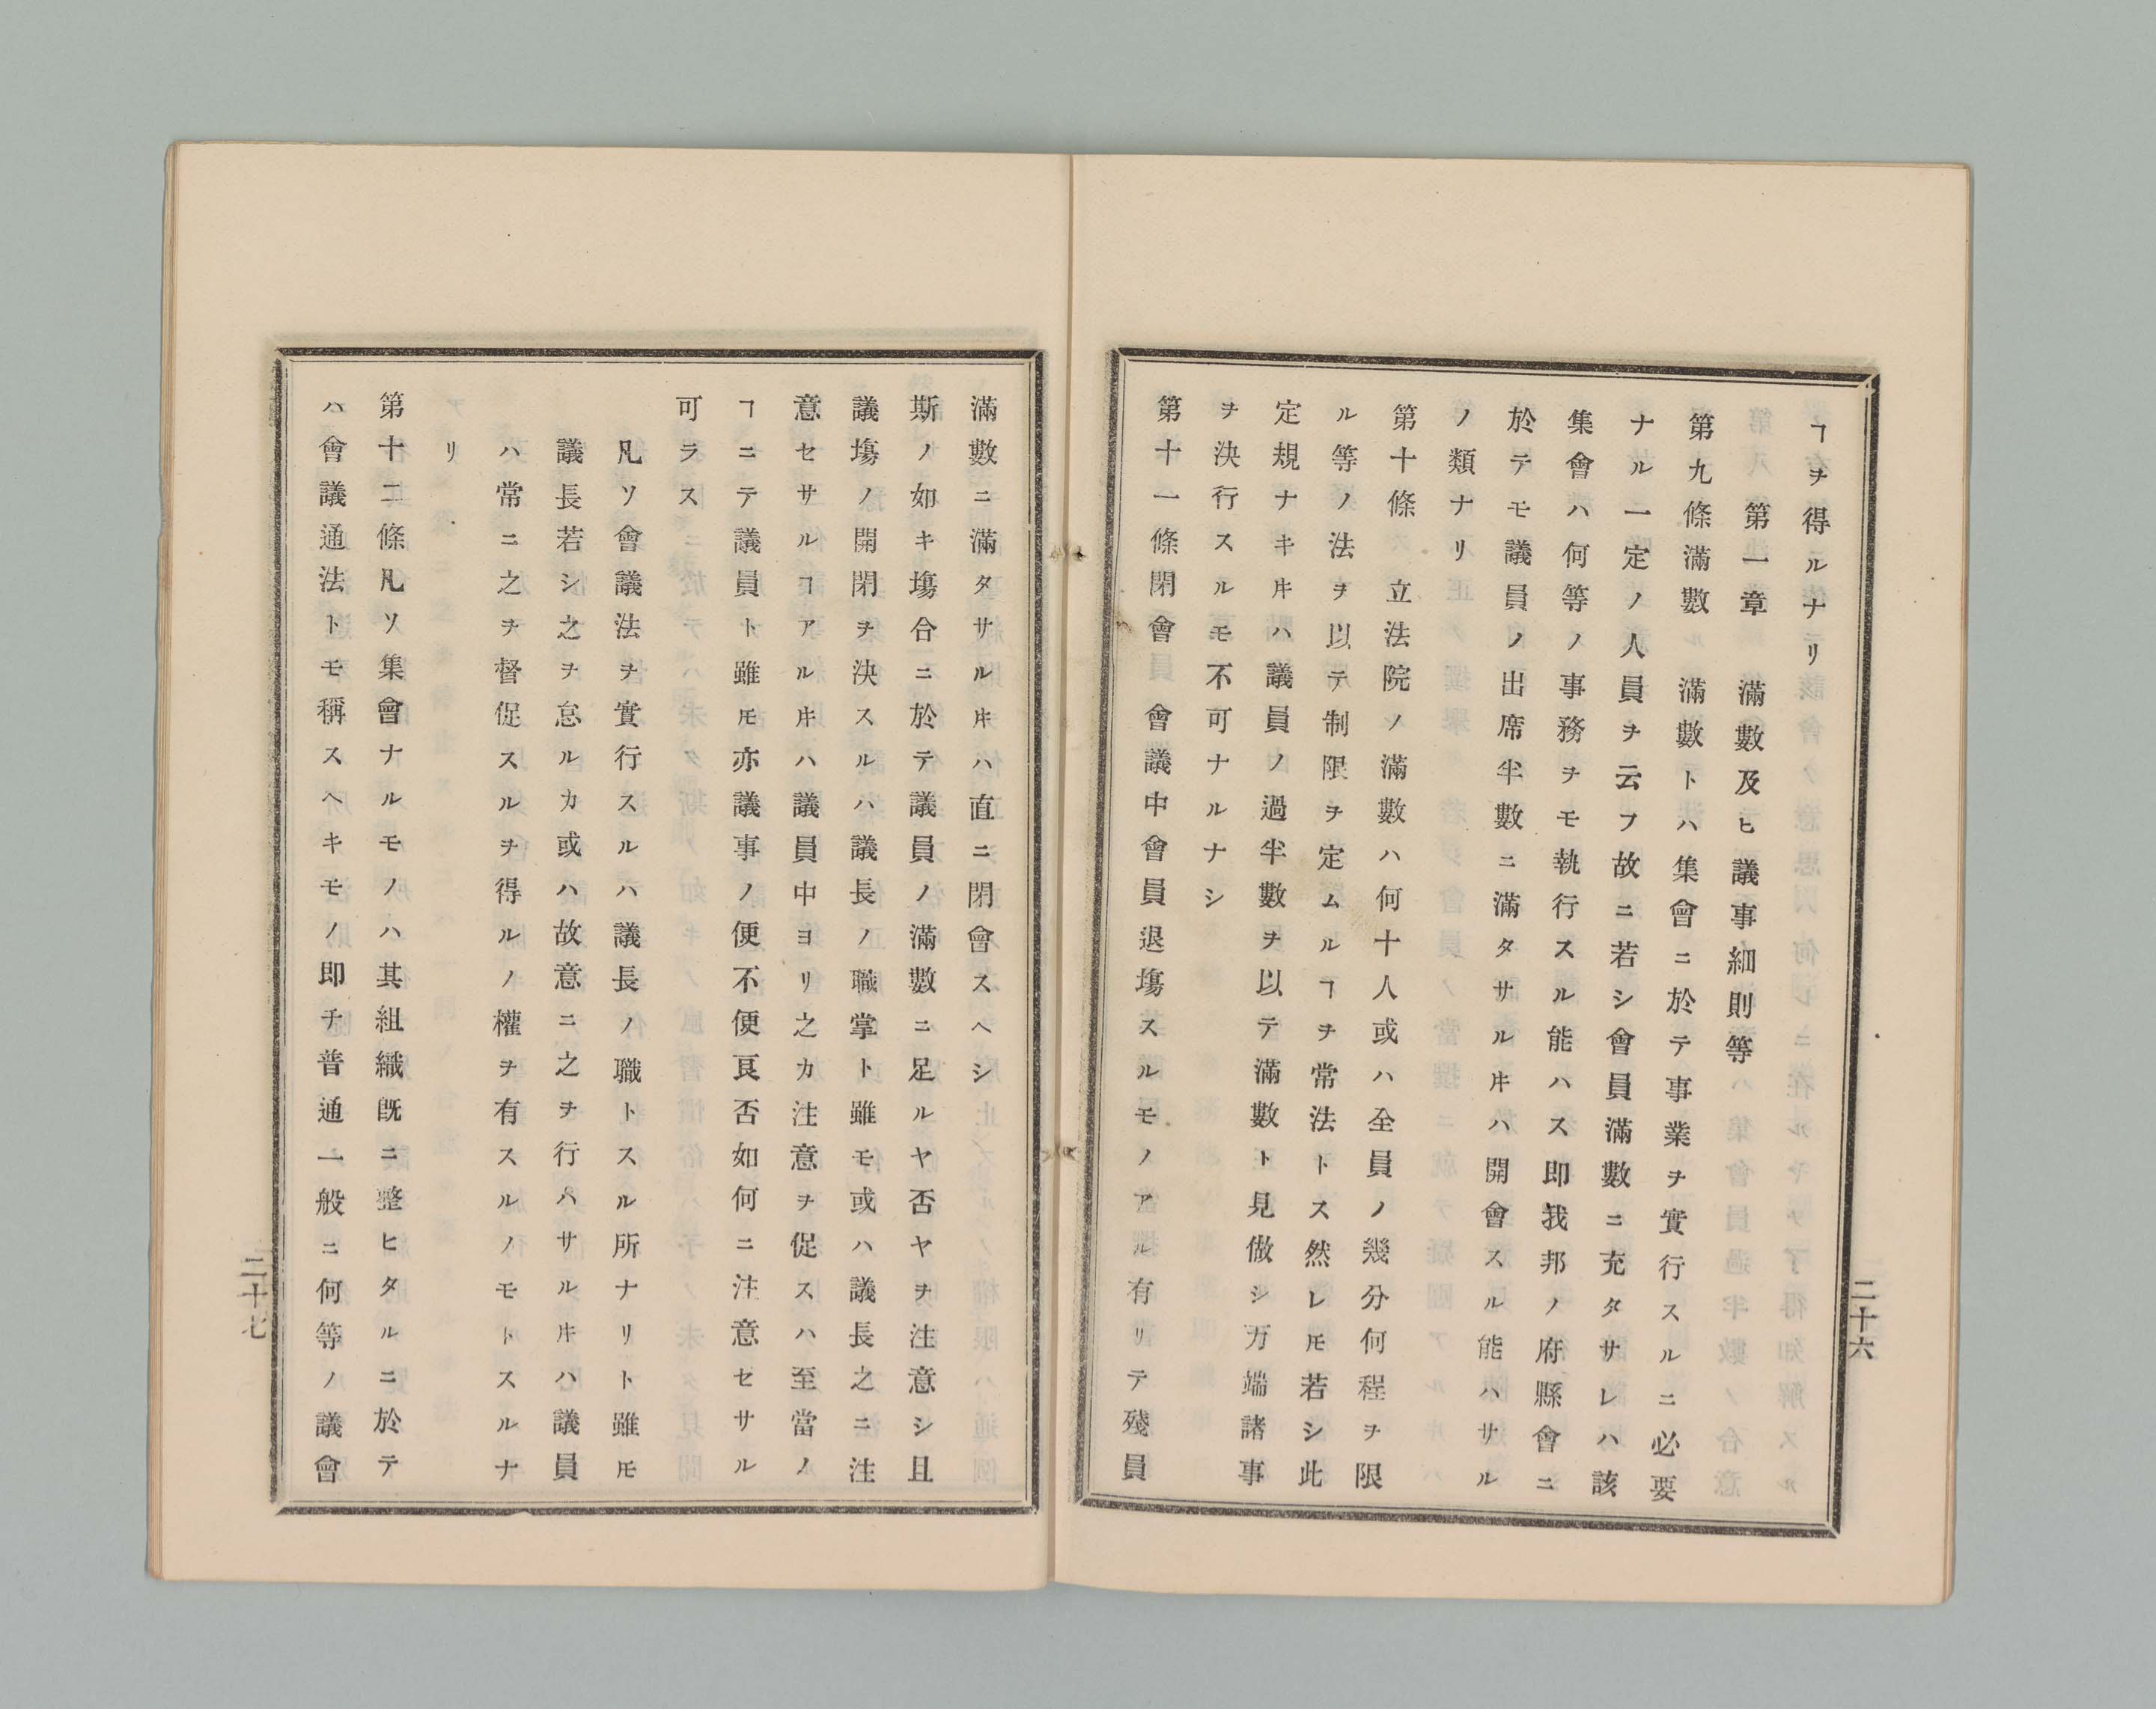 ヿヲ得ルナリ
第一章　滿數及ヒ議事細則等
第九條滿數　滿數トハ集會ニ於テ事業ヲ實行スルニ必要
ナル一定ノ人員ヲ云フ故ニ若シ會員滿數ニ充タサレハ該
集會ハ何等ノ事務ヲモ執行スル能ハス即我邦ノ府縣會ニ
於テモ議員ノ出席半數ニ滿タサルキハ開會スル能ハサル
ノ類ナリ
第十條　立法院ノ滿數ハ何十人或ハ全員ノ幾分何程ヲ限
ル等ノ法ヲ以テ制限ヲ定ムルヿヲ常法トス然レ𪜈若シ此
定規ナキキハ議員ノ過半數ヲ以テ滿數ト見做シ万端諸事
ヲ決行スルモ不可ナルナシ
第十一條閉會　會議中會員退塲スルモノアル有リテ殘員
二十六
滿數ニ滿タサルキハ直ニ閉會スヘシ
斯ノ如キ塲合ニ於テ議員ノ滿數ニ足ルヤ否ヤヲ注意シ且
議塲ノ開閉ヲ決スルハ議長ノ職掌ト雖モ或ハ議長之ニ注
意セサルヿアルキハ議員中ヨリ之カ注意ヲ促スハ至當ノ
ヿニテ議員ト雖𪜈亦議事ノ便不便良否如何ニ注意セサル
可ラス
凡ソ會議法ヲ實行スルハ議長ノ職トスル所ナリト雖𪜈
議長若シ之ヲ怠ルカ或ハ故意ニ之ヲ行ハサルキハ議員
ハ常ニ之ヲ督促スルヲ得ルノ權ヲ有スルノモトスルナ
リ
第十二條凡ソ集會ナルモノハ其組織旣ニ整ヒタルニ於テ
ハ會議通法トモ稱スヘキモノ即チ普通一般ニ何等ノ議會
二十七